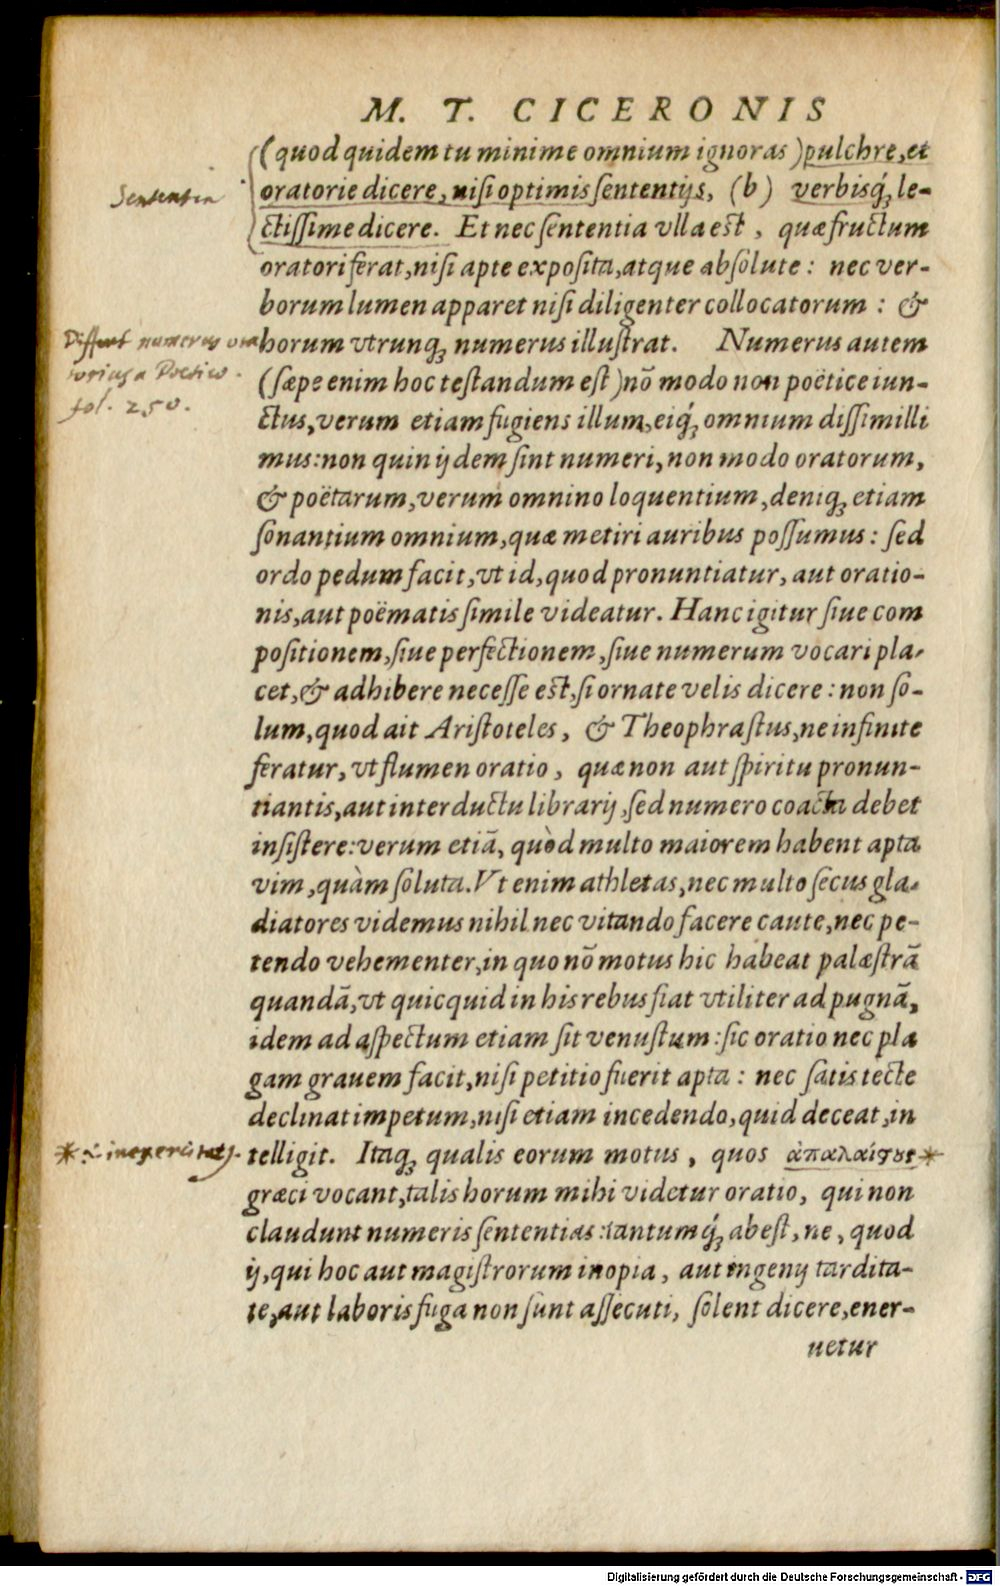 M. T. CICERONIS
(quod quidem tu minime omnium ignoras) pulchre, et
Sententia
oratorie dicere, nisi optimis sententijs, (b) verbisq́ꝫ le-
ctissime dicere. Et nec sententia vlla est, quæ fructum
oratori ferat, nisi apte exposita, atque absolute: nec ver-
borum lumen apparet nisi diligenter collocatorum: &
Differt numerus ora
horum vtrunqꝫ numerus illustrat. Numerus autem
torius a Poetico.
(sæpe enim hoc testandum est) nõ modo non poëtice iun-
fol. 250.
ctus, verum etiam fugiens illum, eiq́ꝫ omnium dissimilli
mus: non quin ijdem sint numeri, non modo oratorum,
& poëtarum, verum omnino loquentium, deniqꝫ etiam
sonantium omnium, quæ metiri auribus possumus: sed
ordo pedum facit, vt id, quod pronuntiatur, aut oratio-
nis, aut poëmatis simile videatur. Hanc igitur siue com
positionem, siue perfectionem, siue numerum vocari pla-
cet, & adhibere necesse est, si ornate velis dicere: non so-
lum, quod ait Aristoteles, & Theophrastus, ne infinite
feratur, vt flumen oratio, quæ non aut spiritu pronun-
tiantis, aut interductu librarij, sed numero coacta debet
insistere: verum etiã, quòd multo maiorem habent apta
vim, quàm soluta. Vt enim athletas, nec multo secus gla-
diatores videmus nihil nec vitando facere caute, nec pe-
tendo vehementer, in quo nõ motus hic habeat palæstrã
quandã, vt quicquid in his rebus fiat vtiliter ad pugnã,
idem ad aspectum etiam sit venustum: sic oratio nec pla
gam grauem facit, nisi petitio fuerit apta: nec satis tecte
declinat impetum, nisi etiam incedendo, quid deceat, in
* .i. inexercitatos.
telligit. Itaqꝫ qualis eorum motus, quos ἀπαλαίστους *
græci vocant, talis horum mihi videtur oratio, qui non
claudunt numeris sententias: tantumq́ꝫ abest, ne, quod
ij, qui hoc aut magistrorum inopia, aut ingenij tardita-
te, aut laboris fuga non sunt assecuti, solent dicere, ener-
uetur
Digitalisierung gefördert durch die Deutsche Forschungsgemeinschaft - DFG